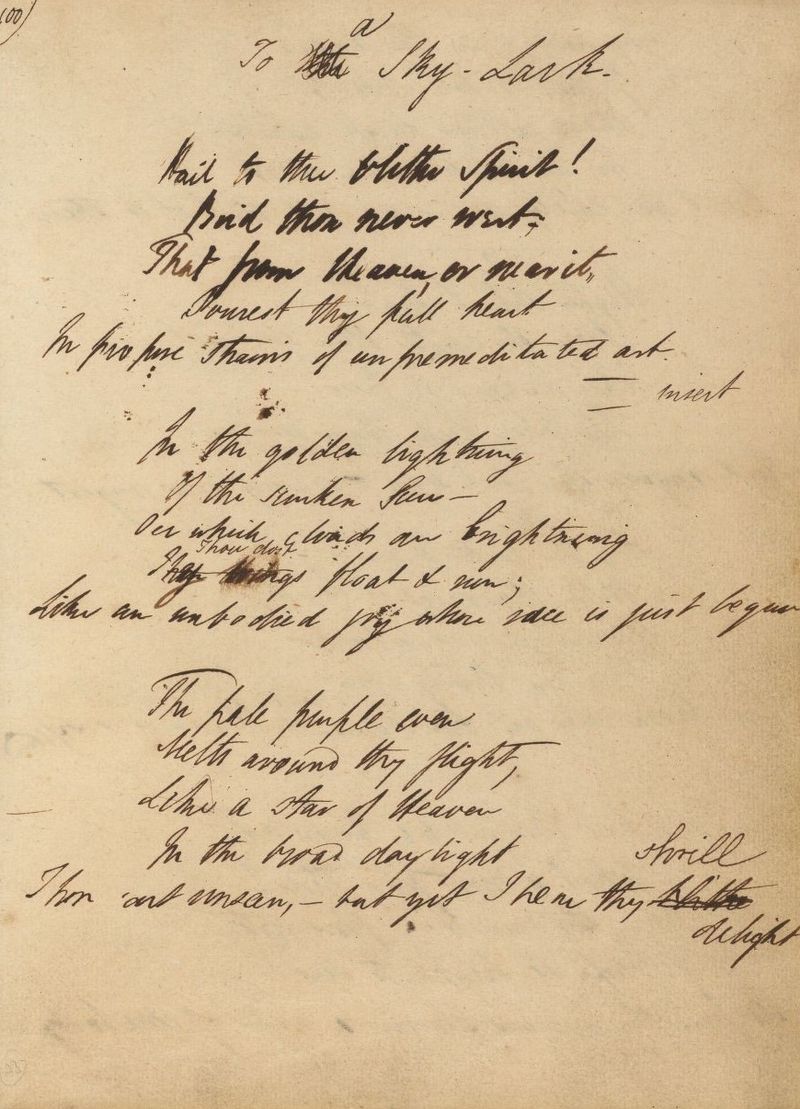 100)
To a Sky-Lark.
Hail to thee blithe Spirit!
Bird thou never wert;
That from Heaven, or near it,
Pourest thy full heart
In profuse strains of unpremeditated art.
insert
In the golden lightning
Of the sunken Sun —
Oer which clouds are brightning
Thou dost
float & run;
Like an unbodied joy whose race is just begun
The pale purple even
Melts around thy flight,
Like a star of Heaven
In the broad daylight
shrill
Thou art unseen, — but yet I hear thy blithe
delight